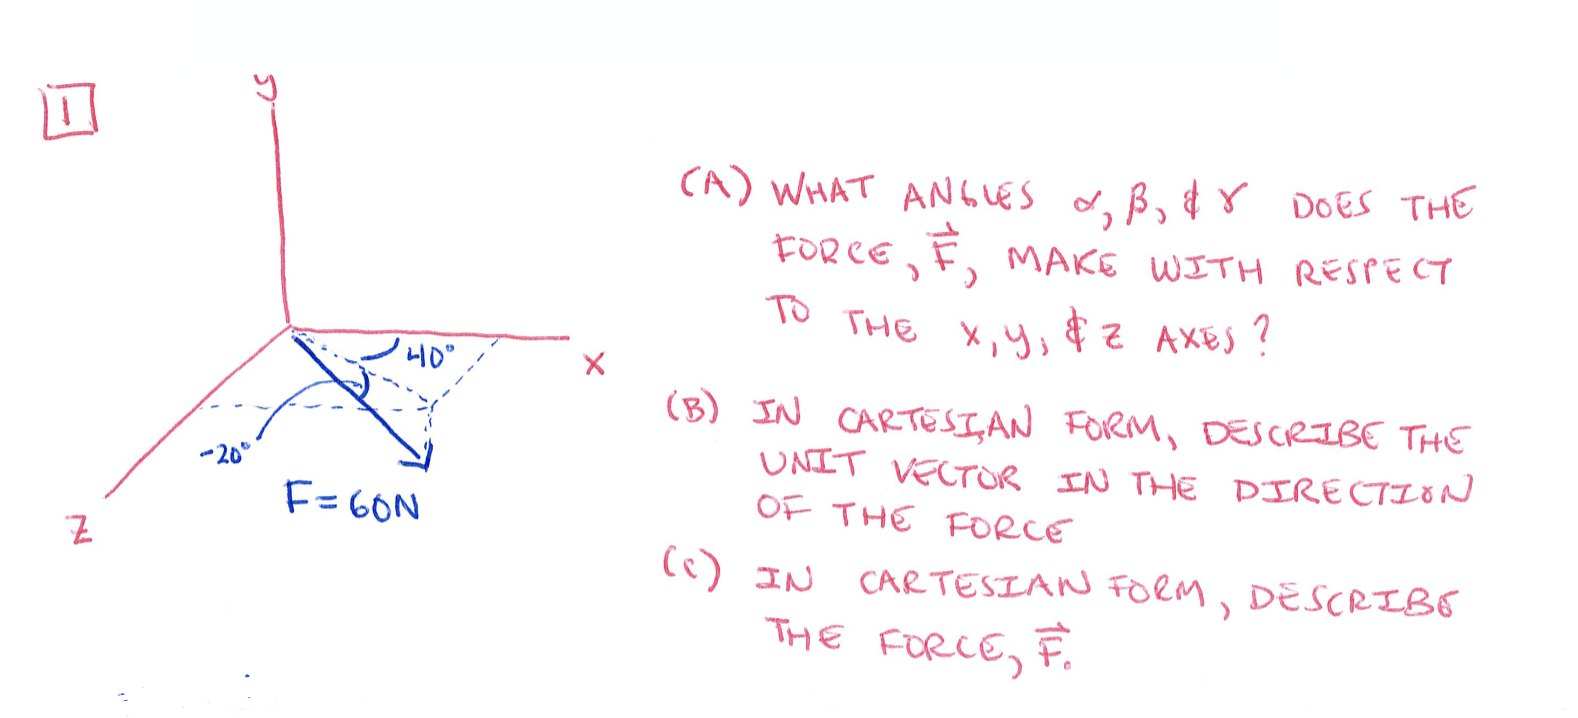 1
y
(A) WHAT ANGLES α, β, & γ DOES THE
FORCE, F⃗, MAKE WITH RESPECT
TO THE x, y, & z AXES?
40°
x
-20°
F = 60N
z
(B) IN CARTESIAN FORM, DESCRIBE THE
UNIT VECTOR IN THE DIRECTION
OF THE FORCE
(C) IN CARTESIAN FORM, DESCRIBE
THE FORCE, F⃗.